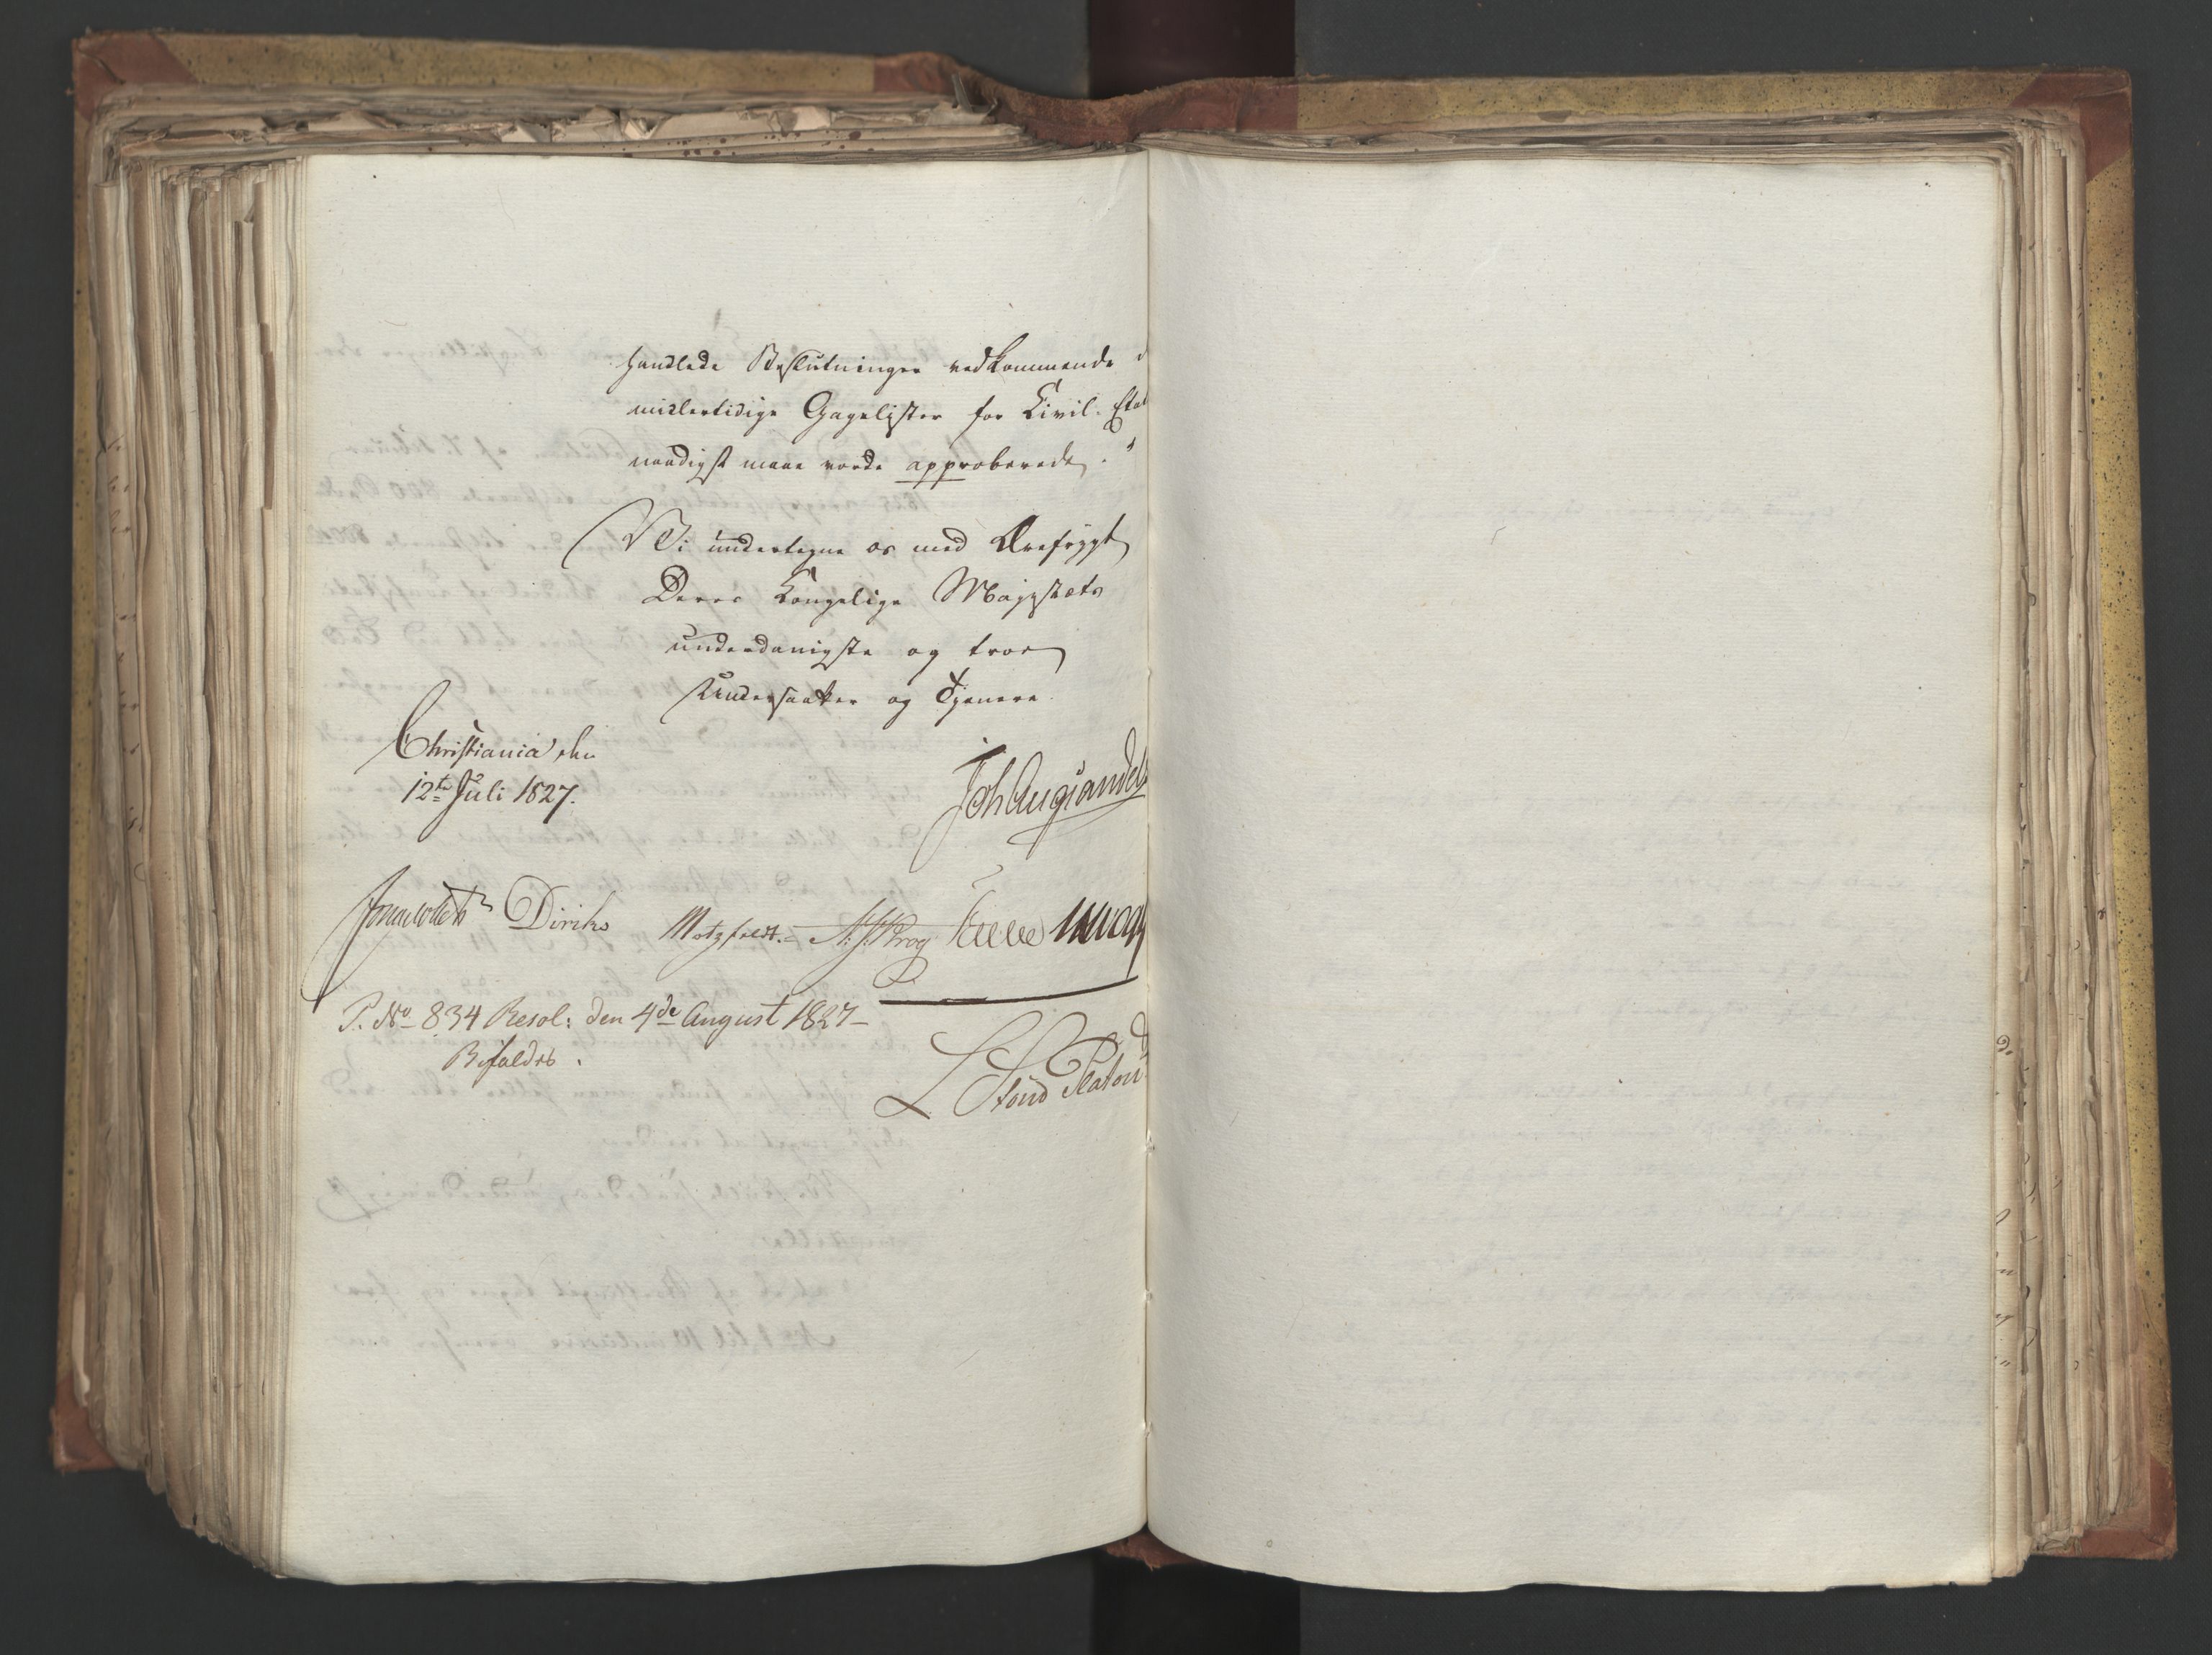 handlede Beslutninger vedkommende
midlertidige Gagelister for Civil-Etat
naadigst maae vorde approberede."
Vi undertegne os med Ærefrygt
Deres Kongelige Majestæts
underdanigste og troe
Undersaatter og Tjenere.
Christiania den
12te Juli 1827.
Joh Aug Sandels
Jonas Collett Diriks Motzfeldt. Krog
P. No 834 Resol: den 4de August 1827
Bifaldes.
L Stoud Platou